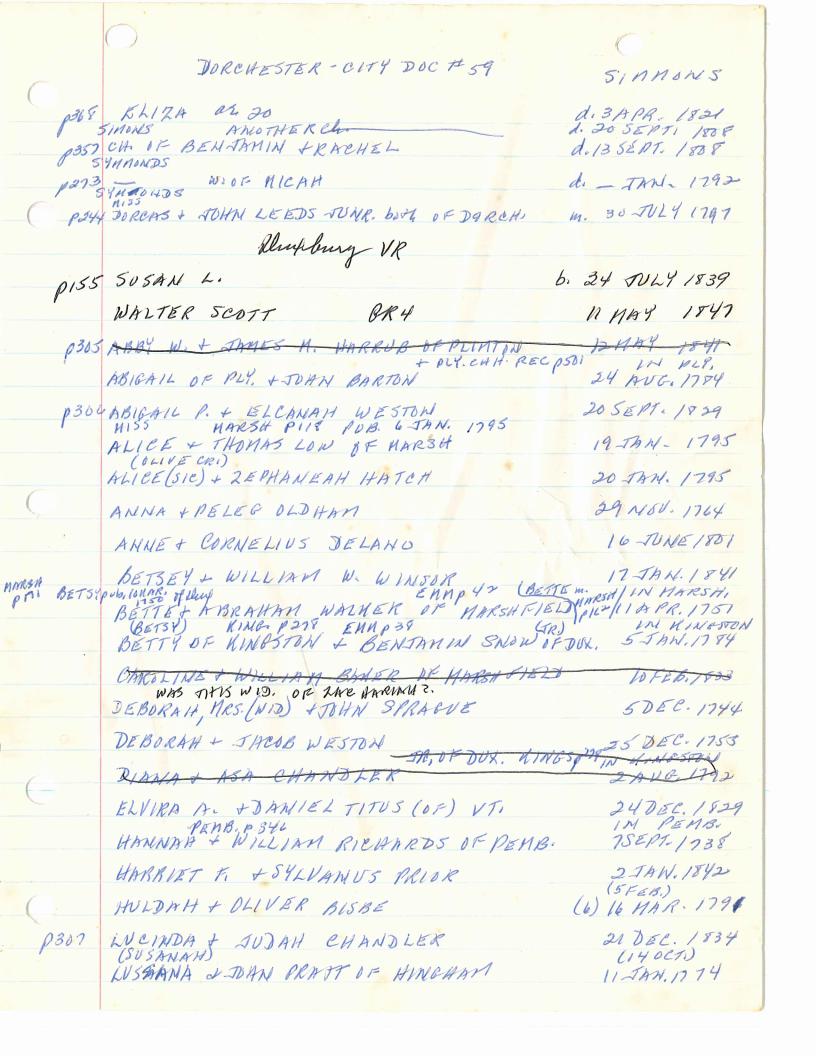 DORCHESTER - CITY DOC # 59 SIMMONS
p368 ELIZA ae 20 d. 3 APR. 1821
SIMONS ANOTHER Ch. d. 20 SEPT. 1808
p357 CH. OF BENJAMIN + RACHEL d. 13 SEPT. 1808
SYMMONDS
p273 — W. OF MICAH d. — JAN. 1792
SYMMONDS
MISS
p244 DORCAS + JOHN LEEDS JUNR. both OF DORCH. m. 30 JULY 1797
Duxbury VR
p155 SUSAN L. b. 24 JULY 1839
WALTER SCOTT GR4 11 MAY 1847
p305 ABBY W. + JAMES M. HARRUB OF PLIMTON 12 MAY 1841
+ PLY. CHH. REC p501 IN PLY.
ABIGAIL OF PLY. + JOHN BARTON 24 AUG. 1784
p306 ABIGAIL P. + ELCANAH WESTON 20 SEPT. 1829
MISS MARSH P118 PUB. 6 JAN. 1795
ALICE + THOMAS LOW OF MARSH 19 JAN. 1795
(OLIVE CR1)
ALICE (SIC) + ZEPHANEAH HATCH 20 JAN. 1795
ANNA + PELEG OLDHAM 29 NOV. 1764
ANNE + CORNELIUS DELANO 16 JUNE 1801
BETSEY + WILLIAM W. WINSOR 17 JAN. 1841
MARSH BETSY pub. 10 MAR. 1750 EMM p42 (BETTE m. MARSH IN MARSH,
BETTE + ABRAHAM WALKER OF MARSHFIELD) 11 APR. 1751
(BETSY) KING. P278 EMM p38 (JR.) IN KINGSTON
BETTY OF KINGSTON + BENJAMIN SNOW OF DUX. 5 JAN. 1784
CAROLINE + WILLIAM BAKER OF MARSHFIELD 10 FEB. 1833
WAS THIS WID. OF ZACHARIAH?
DEBORAH, MRS. (WID) + JOHN SPRAGUE 5 DEC. 1744
DEBORAH + JACOB WESTON 25 DEC. 1753
JR. OF DUX. KINGS IN KINGSTON
DIANA + ASA CHANDLER 2 AUG. 1792
ELVIRA A. + DANIEL TITUS (OF) VT. 24 DEC. 1829
PEMB. p 346 IN PEMB.
HANNAH + WILLIAM RICHARDS OF PEMB. 7 SEPT. 1738
HARRIET F. + SYLVANUS PRIOR 2 JAN. 1842
(5 FEB.)
HULDAH + OLIVER BISBE (6) 16 MAR. 1791
p307 LUCINDA + JUDAH CHANDLER 21 DEC. 1834
(SUSANAH) (14 OCT.)
LUSSANA + JOHN PRATT OF HINGHAM 11 JAN. 1774